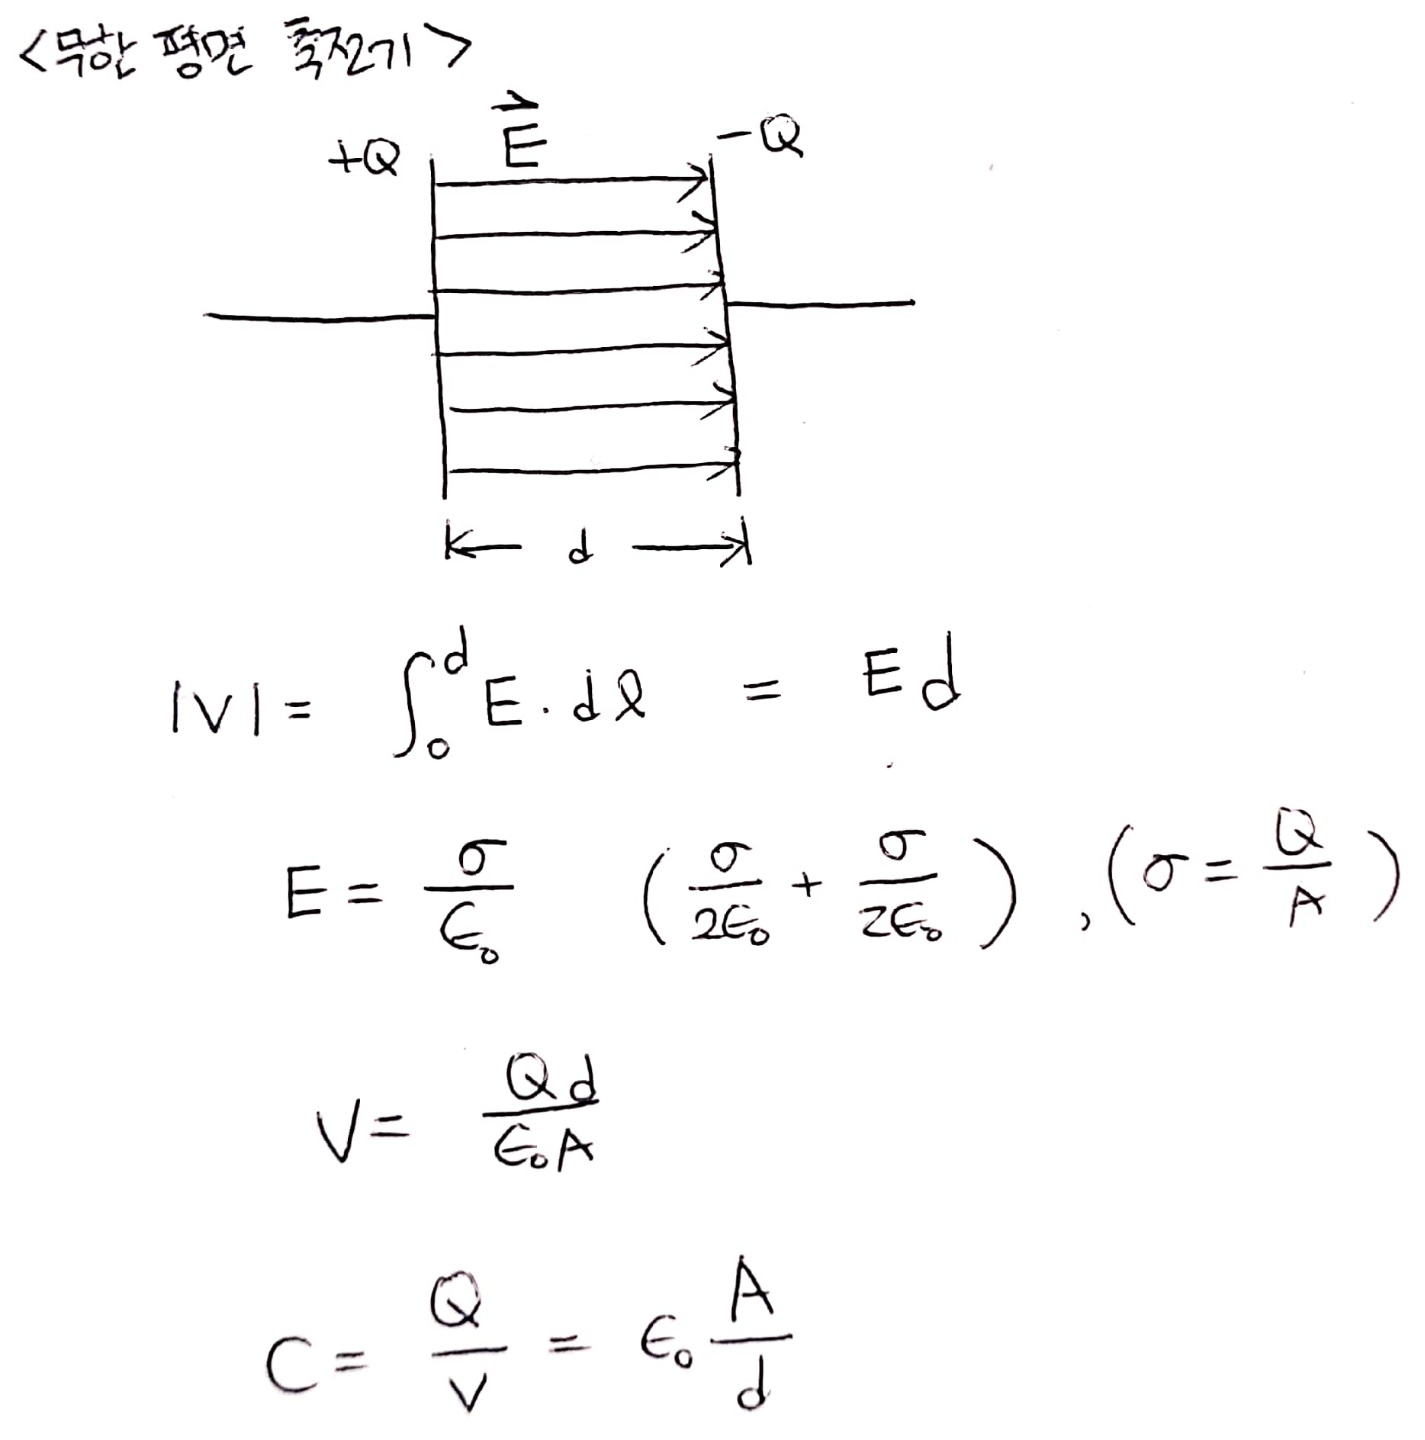 <무한 평면 축전기>
+Q \vec{E} -Q
d
|V| = \int_0^d E \cdot dl = Ed
E = \frac{σ}{ε_0} ( \frac{σ}{2ε_0} + \frac{σ}{2ε_0} ) , ( σ = \frac{Q}{A} )
V = \frac{Qd}{ε_0 A}
C = \frac{Q}{V} = ε_0 \frac{A}{d}